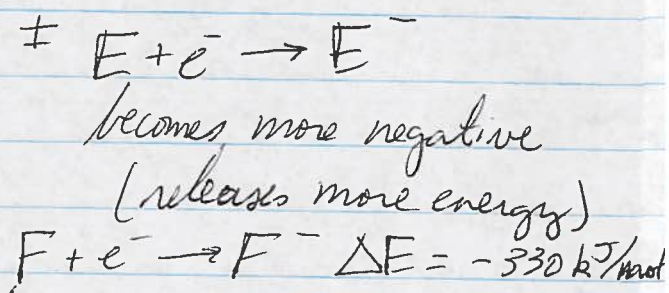 ± E + e⁻ → E⁻
becomes more negative
(releases more energy)
F + e⁻ → F⁻ ΔE = -330 kJ/